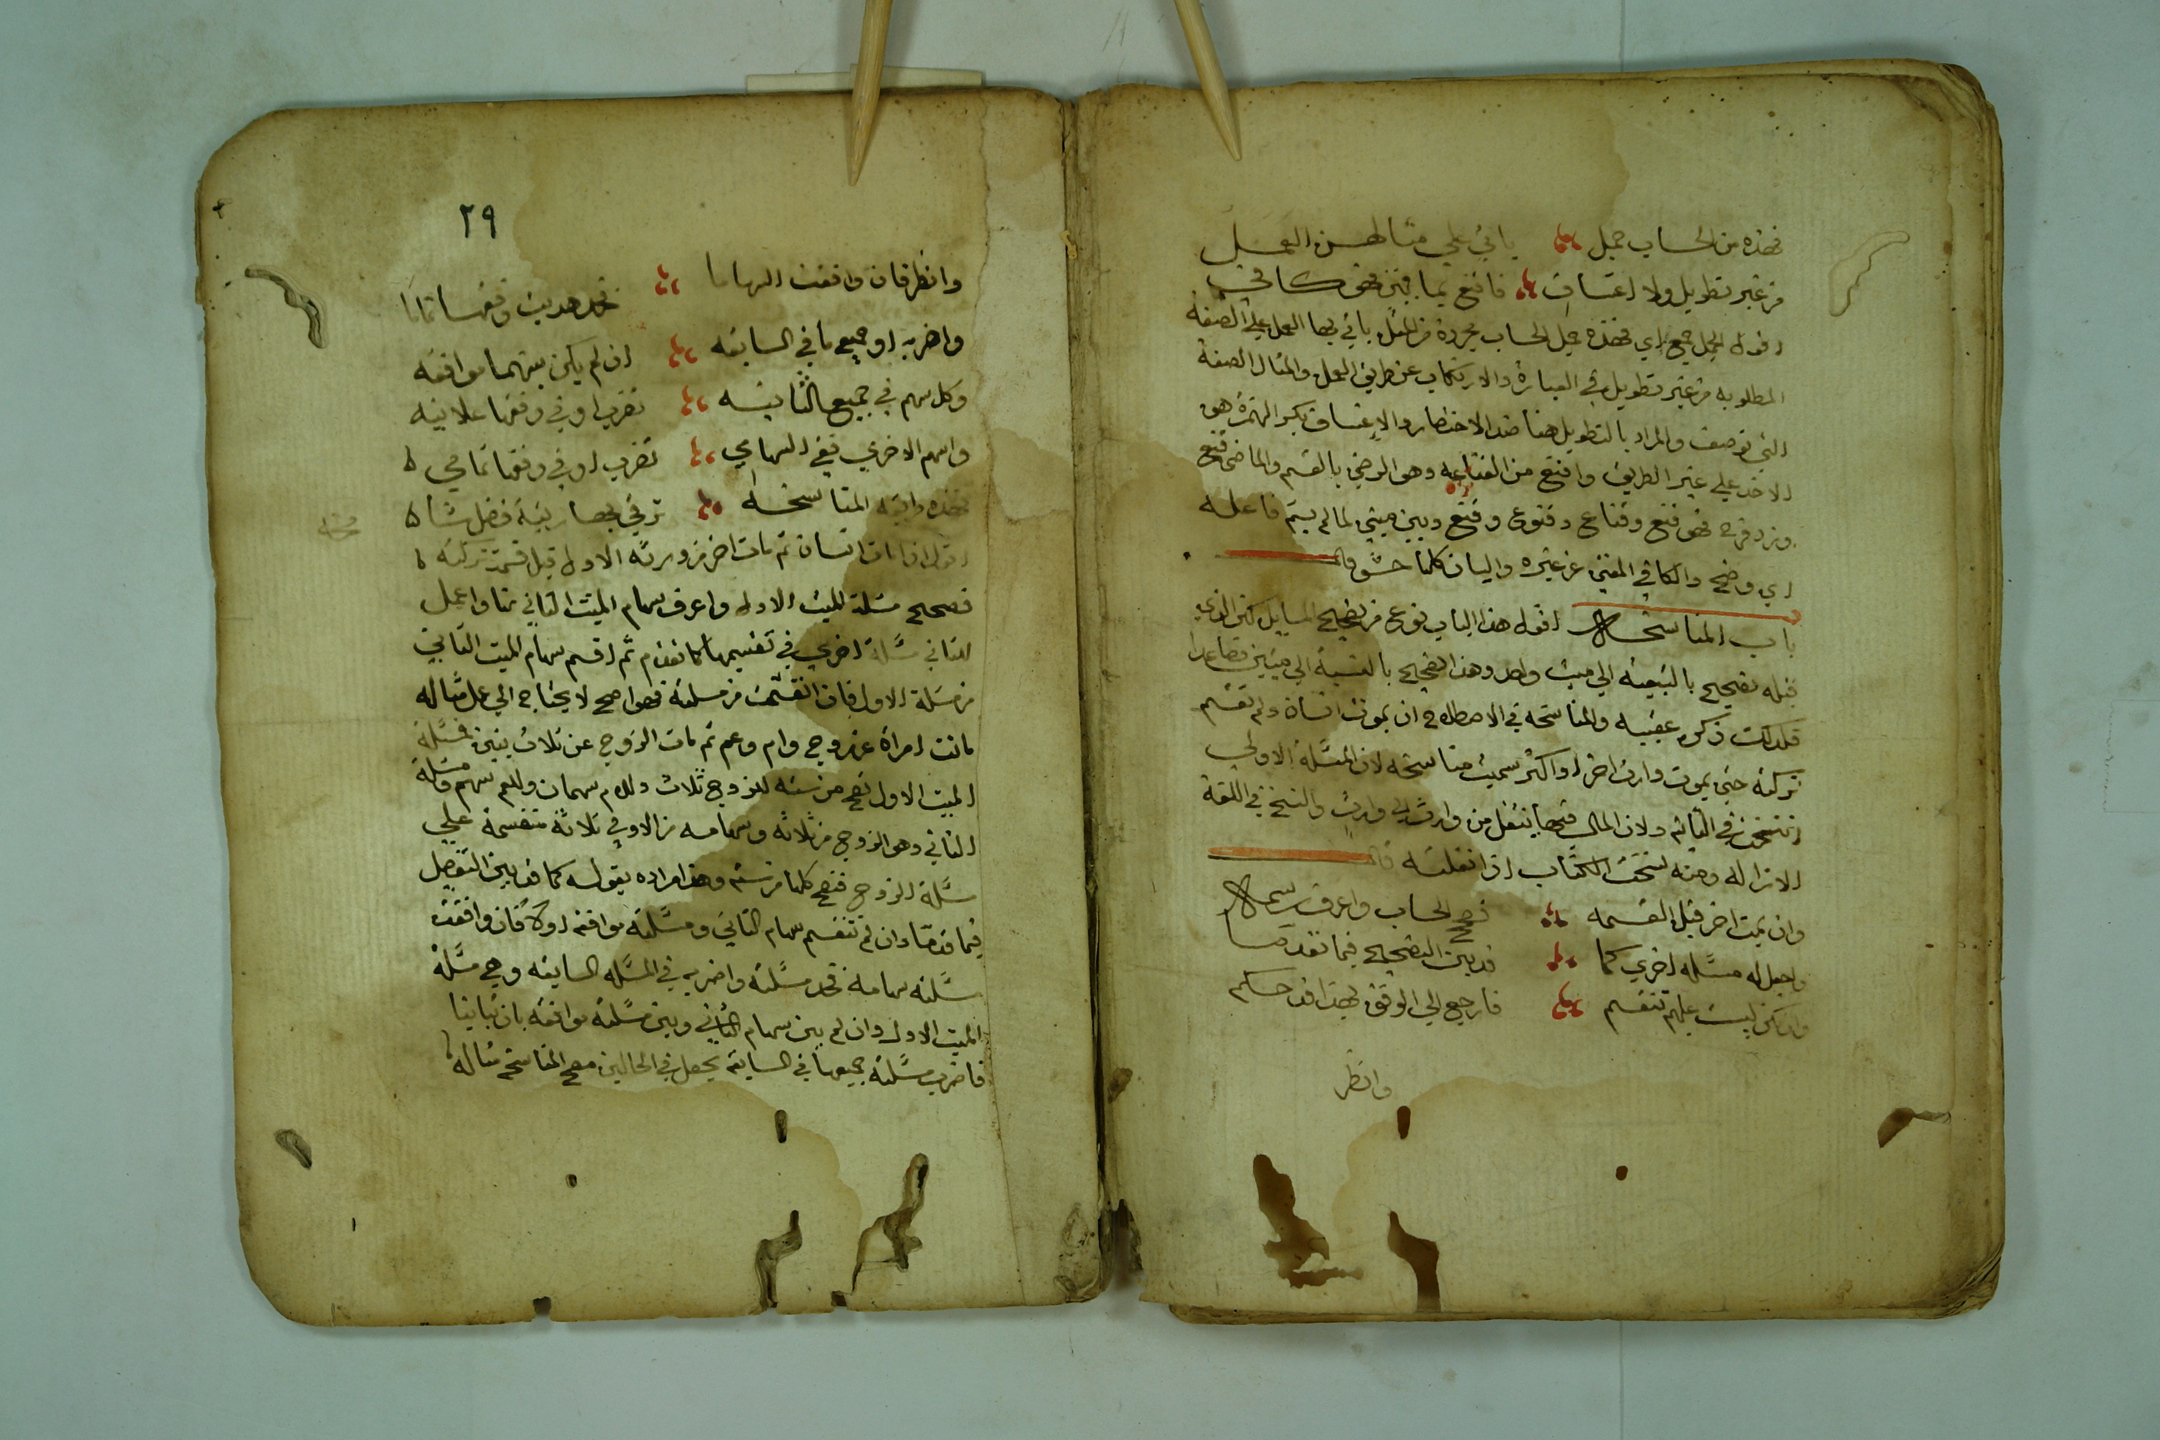 فهذه من الحساب جمل ياتي علي مثالهن العمل
من غير تطويل ولا اعتساف فاقنع بما بين فهو كافي
اقول الجمل جمع اي فهذه جمل الحساب مجردة من المثل ياتي بها العمل علي الصفة
المطلوبه من غير تطويل في العبارة والارتكاب عن طريق العمل والمثال الصفة
التي توصف والمراد بالتطويل هنا ضد الاختصار والاعتساف بكسر الهمزة هو
الاخذ علي غير الطريق واقنع من القناعه وهو الرضي بالقسم والماضي قنع
فهو قنع وقناع وقنوع وقنع وبين مبني لما لم يسم فاعله
اي وضح والكافي المغني عن غيره والبيان كلها حشو قال
باب المناسخات اقول هذا الباب نوع من تصحيح المسايل لكن الذي
قبله تصحيح بالنسبة الي ميت واحد وهذا تصحيح بالنسبة الي ميتين فصاعدا
فلذلك ذكره عقبيه والمناسخه في الاصطلاح ان يموت انسان ولم تقسم
تركته حتي يموت وارث اخر او اكثر سميت مناسخه لان المسئلة الاولي
انتسخت بالثانيه ولان المال فيها ينتقل من وارث الي وارث والنسخ في اللغة
الازاله ومنه نسخت الكتاب اذا نقلته قال
وان يمت اخر قبل القسمه فصحح الحساب واعرف سهمه
واجعل له مسئله اخري كما قد بين التصحيح فيما تقدما
وان تكن ليست عليهم تنقسم فارجع الي الوفق بهذا قد حكم
وانظر
٢٩
وانظر فان وافقت السهاما فخذ هديت وفقها تماما
واضربه او جميعها في السابقه ان لم يكن بينهما موافقه
وكل سهم في جميع الثانيه تضرب او في وفقها علانيه
واسهم الاخري ففي السهام تضرب او في وفقها تمام
فهذه طريقة المناسخه فارق بها رتبة فضل شامخه
اقول اذا مات انسان ثم مات اخر من ورثه الاول قبل قسمة تركته
فصحح مسئلة الميت الاول واعرف سهام الميت الثاني منها واعمل
للثاني مسئلة اخري في تقسيمها كما تقدم ثم اقسم سهام الميت الثاني
من مسئلة الاول فان انقسمت من مسئلته فهو اصح لا يحتاج الي عمل مثاله
ماتت امراة عن زوج وام وعم ثم مات الزوج عن ثلاث بنين فمسئلة
الميت الاول تصح من سته للزوج ثلاث وللام سهمان وللعم سهم ومسئلة
الثاني وهو الزوج من ثلاثه وسهامه من الاولي ثلاثة منقسمة علي
مسئلة الزوج فتصح كلها من سته وهذا مراده بقوله كما قد بين التفصيل
فيما قدما وان لم تنقسم سهام الثاني ومسئلته موافقه اولا فان وافقت
مسئلته سهامه فخذ مسئلته واضربه في المسئله السابقه وهي مسئلة
الميت الاول وان لم بين سهام الثاني وبين مسئلته موافقه بان تباينا
فاضرب مسئلته جميعها في السابقه يحصل في الحالين مصح المناسخه مثاله